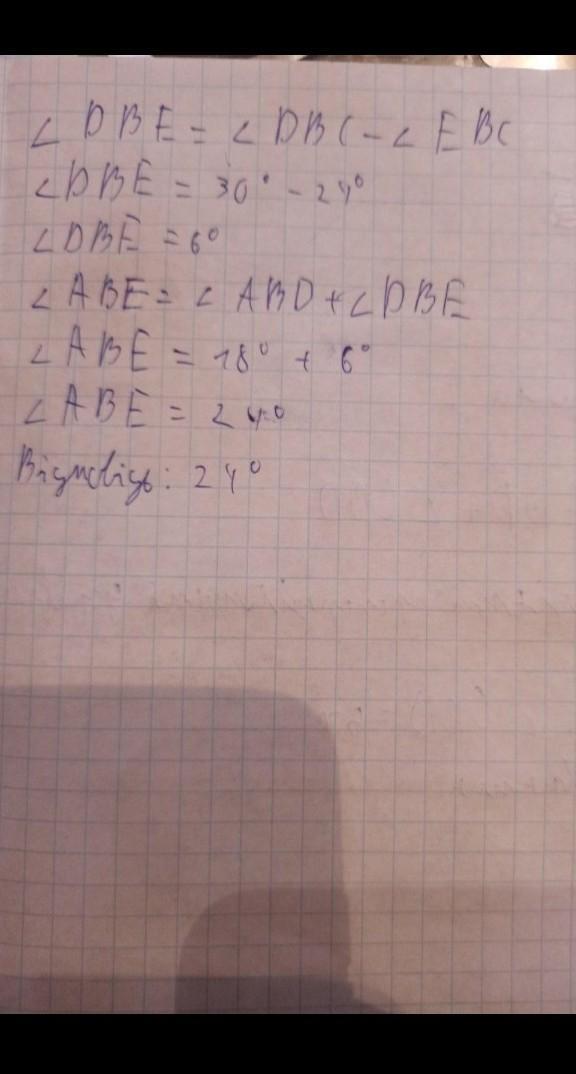 ∠DBE = ∠DBC - ∠EBC
∠DBE = 30° - 24°
∠DBE = 6°
∠ABE = ∠ABD + ∠DBE
∠ABE = 18° + 6°
∠ABE = 24°
Відповідь: 24°